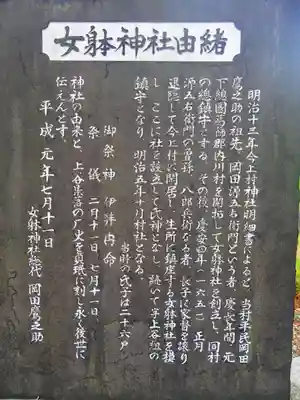 女躰神社由緒
明治十三年今上村神社明細書によると、当村平民岡田
慶之助の祖先、岡田源五右衛門という者、慶長年間、元
下総國葛飾郡内川村を開拓して女躰神社を創立し、同村
の総鎮守とする。その後、慶安四年(一六五一)正月
源五右衛門の曽孫、八郎兵衛なる者、長子に家督を譲り
退隠して今上村に閑居し、生所に鎮座する女躰神社を模
し、ここに社を設立して氏神となし、続いて字上谷組の
鎮守となり、明治五年十月村社となる。
当時の氏子は二十六戸
御祭神 伊弉冉命
祭儀 二月十一日、七月十一日、
神社の由来と、上谷集落の歴史を貞珉に刻し永く後世に
伝えんとす。
平成元年七月十一日
女躰神社総代 岡田慶之助